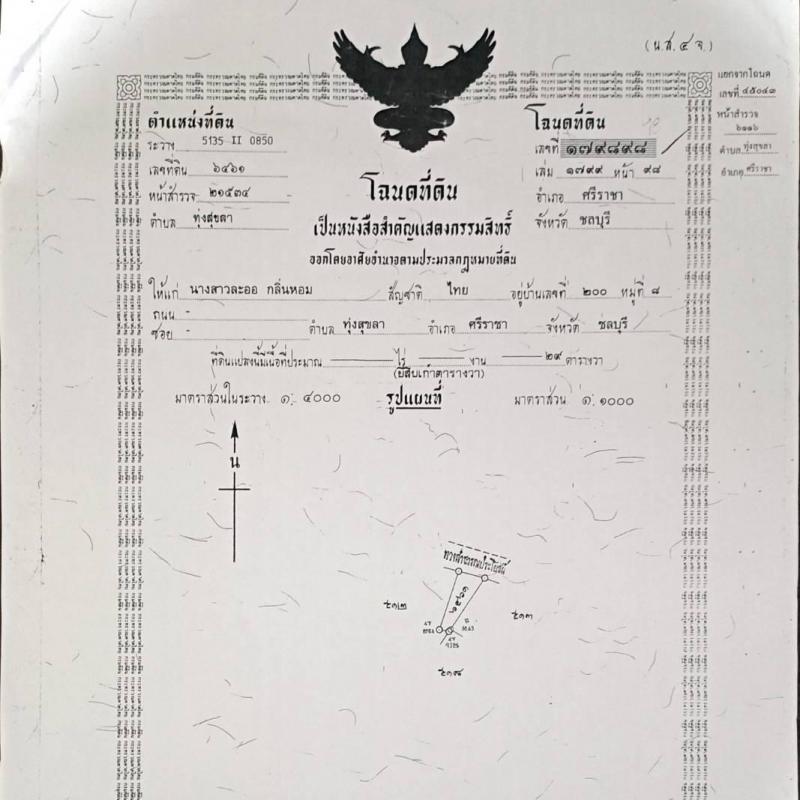 (น.ส.๔ จ.)
แยกจากโฉนด
เลขที่ ๔๕๐๔๓
หน้าสำรวจ
๖๑๑๖
ตำบล ทุ่งสุขลา
อำเภอ ศรีราชา
ตำแหน่งที่ดิน
ระวาง 5135 II 0850
เลขที่ดิน ๖๔๖๑
หน้าสำรวจ ๒๑๕๓๔
ตำบล ทุ่งสุขลา
โฉนดที่ดิน
เลขที่ ๑๗๙๘๙๘
เล่ม ๑๗๙๙ หน้า ๙๘
อำเภอ ศรีราชา
จังหวัด ชลบุรี
โฉนดที่ดิน
เป็นหนังสือสำคัญแสดงกรรมสิทธิ์
ออกโดยอาศัยอำนาจตามประมวลกฎหมายที่ดิน
ให้แก่ นางสาวละออ กลิ่นหอม สัญชาติ ไทย อยู่บ้านเลขที่ ๒๐๐ หมู่ที่ ๘
ถนน -
ซอย - ตำบล ทุ่งสุขลา อำเภอ ศรีราชา จังหวัด ชลบุรี
ที่ดินแปลงนี้มีเนื้อที่ประมาณ — ไร่ — งาน — ๒๙ ตารางวา
(ยี่สิบเก้าตารางวา)
มาตราส่วนในระวาง ๑:๔๐๐๐ รูปแผนที่ มาตราส่วน ๑:๑๐๐๐
น
ทางสาธารณประโยชน์